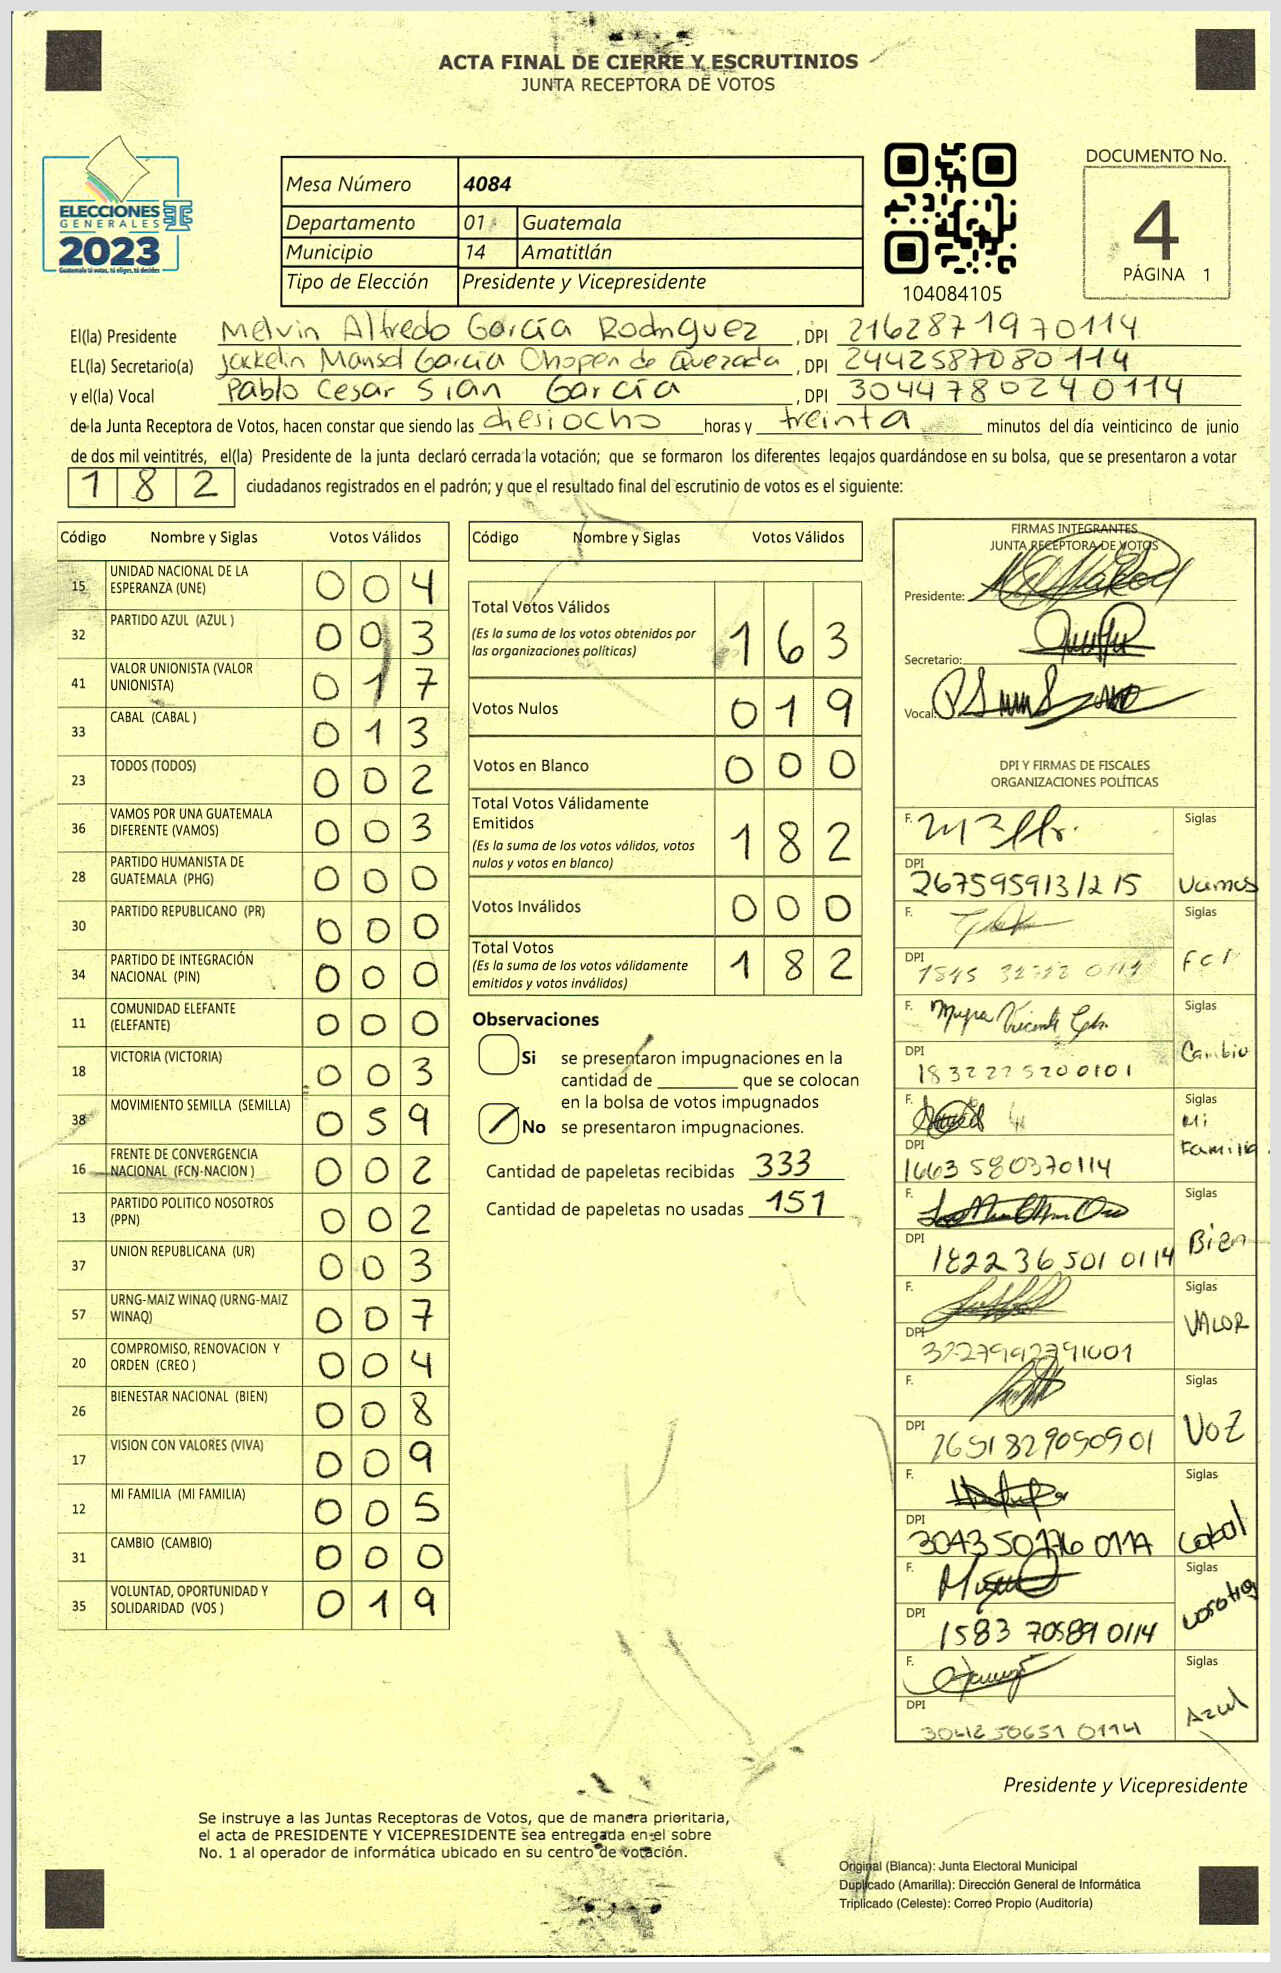 ACTA FINAL DE CIERRE Y ESCRUTINIOS
JUNTA RECEPTORA DE VOTOS
ELECCIONES
GENERALES
2023
Guatemala tú votas, tú eliges, tú decides
Mesa Número 4084
Departamento 01 Guatemala
Municipio 14 Amatitlán
Tipo de Elección Presidente y Vicepresidente
104084105
DOCUMENTO No.
4
PÁGINA 1
El(la) Presidente Melvin Alfredo García Rodriguez, DPI 2162871970114
EL(la) Secretario(a) Jackelin Marisol García Chopen de Quezada, DPI 2442587080114
y el(la) Vocal Pablo Cesar Sian García, DPI 3044780240114
de la Junta Receptora de Votos, hacen constar que siendo las diesiocho horas y treinta minutos del día veinticinco de junio
de dos mil veintitrés, el(la) Presidente de la junta declaró cerrada la votación; que se formaron los diferentes legajos guardándose en su bolsa, que se presentaron a votar
182 ciudadanos registrados en el padrón; y que el resultado final del escrutinio de votos es el siguiente:
Código Nombre y Siglas Votos Válidos
15 UNIDAD NACIONAL DE LA ESPERANZA (UNE) 004
32 PARTIDO AZUL (AZUL ) 003
41 VALOR UNIONISTA (VALOR UNIONISTA) 017
33 CABAL (CABAL ) 013
23 TODOS (TODOS) 002
36 VAMOS POR UNA GUATEMALA DIFERENTE (VAMOS) 003
28 PARTIDO HUMANISTA DE GUATEMALA (PHG) 000
30 PARTIDO REPUBLICANO (PR) 000
34 PARTIDO DE INTEGRACIÓN NACIONAL (PIN) 000
11 COMUNIDAD ELEFANTE (ELEFANTE) 000
18 VICTORIA (VICTORIA) 003
38 MOVIMIENTO SEMILLA (SEMILLA) 059
16 FRENTE DE CONVERGENCIA NACIONAL (FCN-NACION ) 002
13 PARTIDO POLITICO NOSOTROS (PPN) 002
37 UNION REPUBLICANA (UR) 003
57 URNG-MAIZ WINAQ (URNG-MAIZ WINAQ) 007
20 COMPROMISO, RENOVACION Y ORDEN (CREO ) 004
26 BIENESTAR NACIONAL (BIEN) 008
17 VISION CON VALORES (VIVA) 009
12 MI FAMILIA (MI FAMILIA) 005
31 CAMBIO (CAMBIO) 000
35 VOLUNTAD, OPORTUNIDAD Y SOLIDARIDAD (VOS ) 019
Código Nombre y Siglas Votos Válidos
Total Votos Válidos 163
(Es la suma de los votos obtenidos por
las organizaciones politicas)
Votos Nulos 019
Votos en Blanco 000
Total Votos Válidamente
Emitidos 182
(Es la suma de los votos válidos, votos
nulos y votos en blanco)
Votos Inválidos 000
Total Votos 182
(Es la suma de los votos válidamente
emitidos y votos inválidos)
Observaciones
Si se presentaron impugnaciones en la
cantidad de ________ que se colocan
en la bolsa de votos impugnados
No se presentaron impugnaciones.
Cantidad de papeletas recibidas 333
Cantidad de papeletas no usadas 151
FIRMAS INTEGRANTES
JUNTA RECEPTORA DE VOTOS
Presidente:
Secretario:
Vocal:
DPI Y FIRMAS DE FISCALES
ORGANIZACIONES POLÍTICAS
F. Siglas
DPI 2675959131215 Vamos
F. Siglas
DPI
F. Siglas
DPI 1832225200101 Cambio
F. Siglas
DPI 1663580370114 Mi Familia
F. Siglas
DPI 1822365010114 Bien
F. Siglas
DPI 3227992791001 VALOR
F. Siglas
DPI 2651829050901 VoZ
F. Siglas
DPI Cabal
F. Siglas
DPI 1583705890114 Nosotros
F. Siglas
DPI Azul
Presidente y Vicepresidente
Se instruye a las Juntas Receptoras de Votos, que de manera prioritaria,
el acta de PRESIDENTE Y VICEPRESIDENTE sea entregada en el sobre
No. 1 al operador de informática ubicado en su centro de votación.
Original (Blanca): Junta Electoral Municipal
Duplicado (Amarilla): Dirección General de Informática
Triplicado (Celeste): Correo Propio (Auditoría)